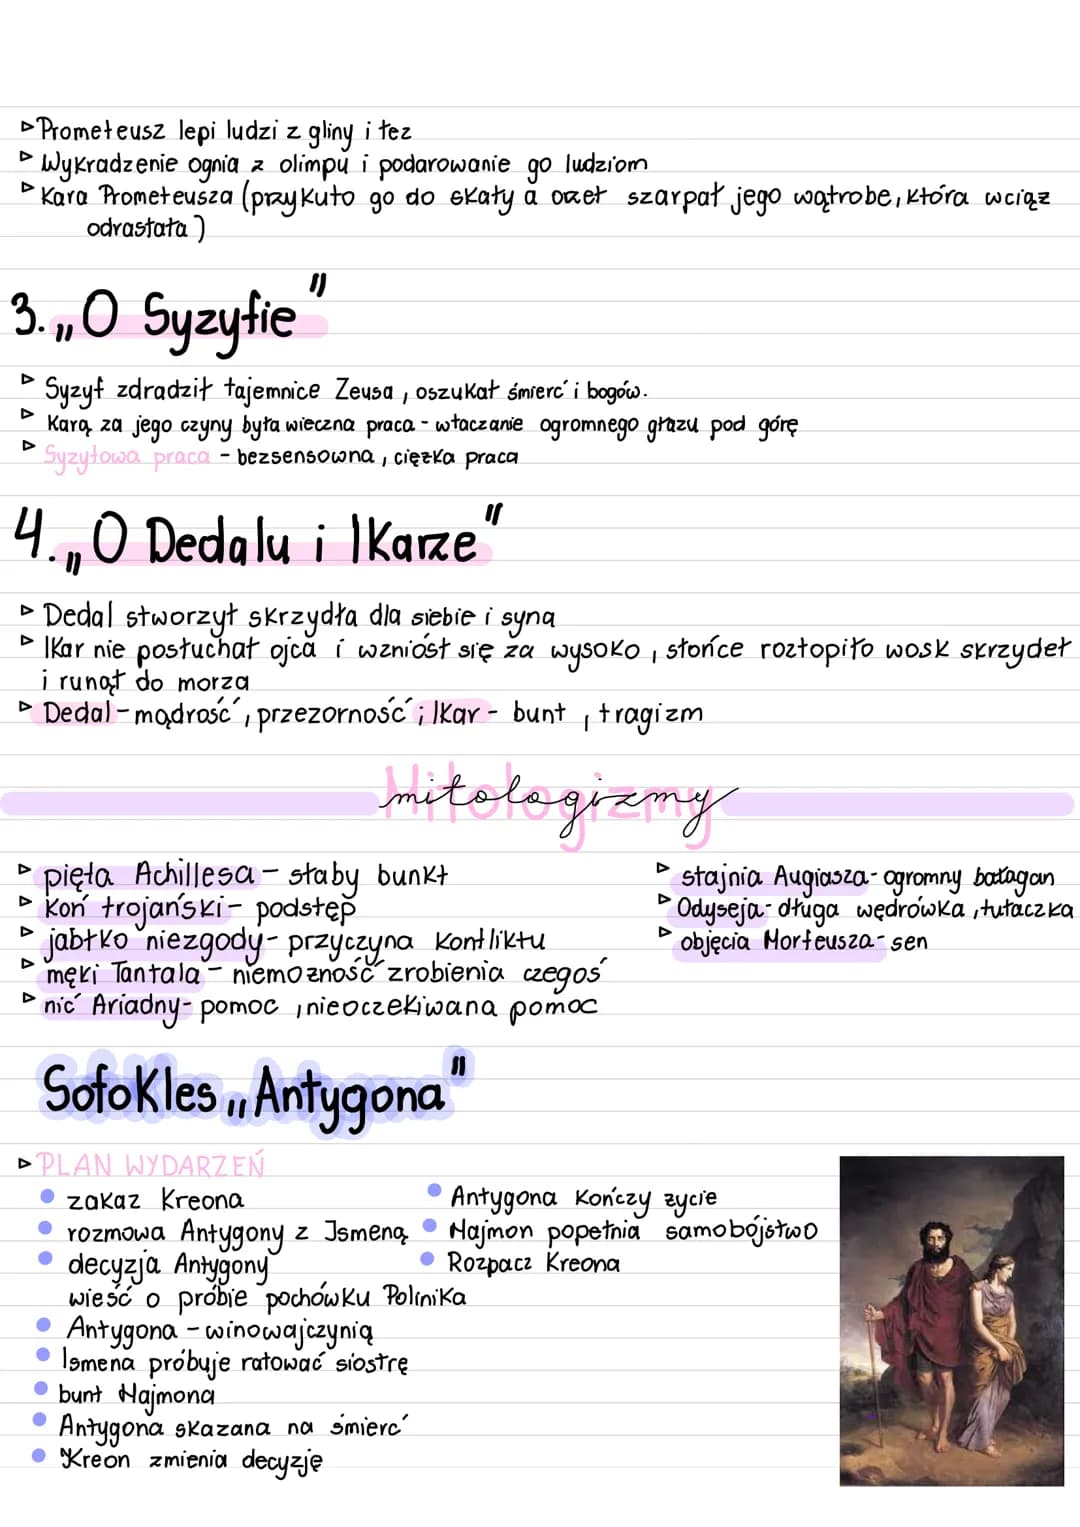 ▹Prometeusz lepi ludzi z gliny i łez
▹Wykradzenie ognia z olimpu i podarowanie go ludziom
▹Kara Prometeusza (przykuto go do skały a orzeł szarpał jego wątrobe, która wciąż
odrastała)
3. „O Syzyfie"
▹Syzyf zdradził tajemnice Zeusa, oszukał śmierć i bogów.
▹Karą za jego czyny była wieczna praca - wtaczanie ogromnego głazu pod górę
▹Syzyfowa praca - bezsensowna, ciężka praca
4. „O Dedalu i Ikarze"
▹Dedal stworzył skrzydła dla siebie i syna
▹Ikar nie posłuchał ojca i wzniósł się za wysoko, słońce roztopiło wosk skrzydeł
i runął do morza
▹Dedal - mądrość, przezorność; Ikar - bunt, tragizm
Mitologizmy
mitologizmy
▹pięta Achillesa - słaby bunkt
▹koń trojański - podstęp
▹jabłko niezgody - przyczyna konfliktu
▹męki Tantala - niemożność zrobienia czegoś
▹nić Ariadny - pomoc, nieoczekiwana pomoc
▹stajnia Augiasza - ogromny bałagan
▹Odyseja - długa wędrówka, tułaczka
▹objęcia Morfeusza - sen
Sofokles „Antygona"
▹PLAN WYDARZEŃ
• zakaz Kreona
• rozmowa Antygony z Ismeną
• decyzja Antygony
wieść o próbie pochówku Polinika
• Antygona - winowajczynią
• Ismena próbuje ratować siostrę
• bunt Hajmona
• Antygona skazana na śmierć
• Kreon zmienia decyzję
• Antygona kończy życie
• Hajmon popełnia samobójstwo
• Rozpacz Kreona